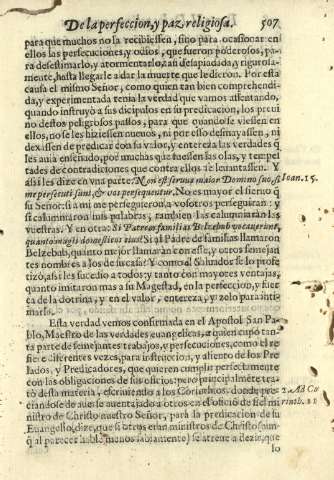 De la perfeccion, y paz, religiosa. 507
para que muchos no la recibiessen, sino para ocasionar en
ellos las persecuciones, y odios, que fueron poderosos, pa-
ra desestimarlo, y atormentarlo tan desapiadada, y rigurosa-
mente, hasta llegarle a dar la muerte que le dieron. Por esta
causa el mismo Señor, como quien tan bien comprehendi-
da, y experimentada tenia la verdad que vamos assentando,
quando instruyò a sus dicipulos en su predicacion, los previ
no destos peligrosos passos, para que quando se viessen en
ellos, no se les hiziessen nuevos, ni por ello desmayassen, ni
dexassen de predicar con su valor, y entereza las verdades q̃
les avia enseñado, por muchas que fuessen las olas, y tempes
tades de contradiciones que contra ellos se levantassen. Y
assi les dize en una parte: Non est servus maior Domino suo, si
me persecuti sunt, & vos persequentur. No es mayor el siervo q̃
su Señor: si a mi me persiguieron, a vosotros perseguiràn: y
si calumniaron mis palabras, tambien las calumniaràn las
vuestras. Y en otra: Si Patrem familias Belzebub vocaverunt,
quanto magis domesticos eius? Si al Padre de familias llamaron
Belzebub, quanto mejor llamaràn con esse, y otros semejan
tes nombres a los de su casa? Y como el Salvador se lo profe
tizò, assi les sucedio a todos: y tanto con mayores ventajas,
quanto imitaron mas a su Magestad, en la perfeccion, y fuer
ça de la dotrina, y en el valor, entereza, y zelo para inti-
marla.
Ioan. 15.
Esta verdad vemos confirmada en el Apostol San Pa-
blo, Maestro de las verdades euangelicas, a quien cupo tan-
ta parte de semejantes trabajos, e persecuciones, como el re
fiere diferentes vezes, para instruccion, y aliento de los Pre
lados, y Predicadores, que quieren cumplir perfectamente
con las obligaciones de sus oficios: pero principalmente tra-
tò desta materia, escriuiendo a los Corinthios, donde
-se aventajado a otros en el oficio de
nistro de Christo nuestro Señor, para la predicacion de su
Euangelio, dize, que si otros eran ministros de Christo (aun-
q̃ al parecer hable menos sabiamente) se atreve a dezir, que
2. Ad Co
rinth. 11
lo